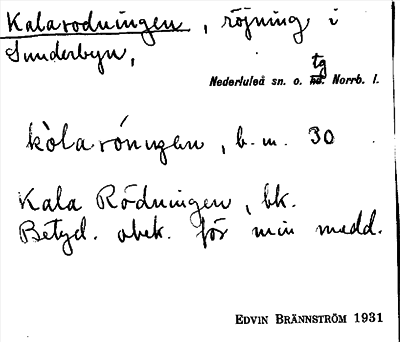 Kalarodningen, röjning i
Sunderbyn,
tg
Nederluleå sn. o. hd. Norrb. l.
kòlarónıŋən, b. m. 30
Kala Rödningen, bk.
Betyd. obek. för min medd.
EDVIN BRÄNNSTRÖM 1931